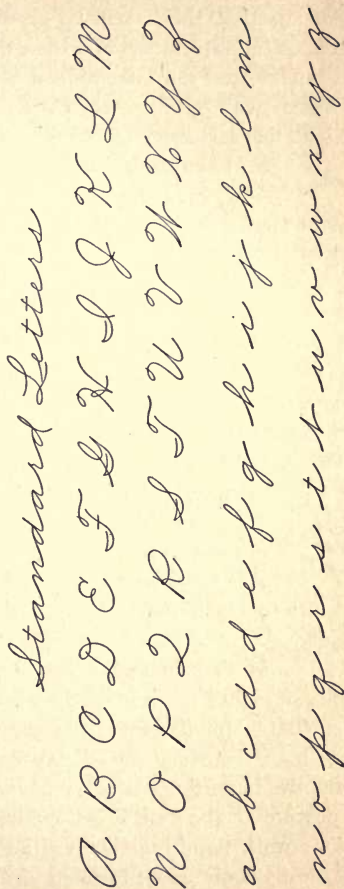 Standard Letters
A B C D E F G H I J K L M
N O P Q R S T U V W X Y Z
a b c d d e f g h i j k l m
n o p q r s t t u v w x y z